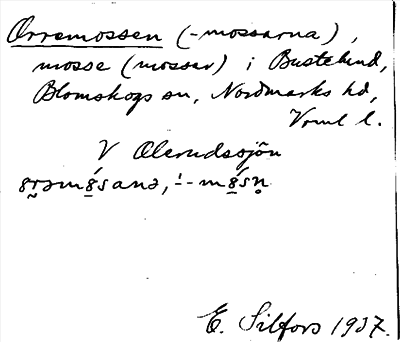 Orremossen (-mossarna),
mosse (mossar) i Bustelund,
Blomskogs sn, Nordmarks hd,
Vrml l.
V Olerudssjön
E. Silfors 1937.